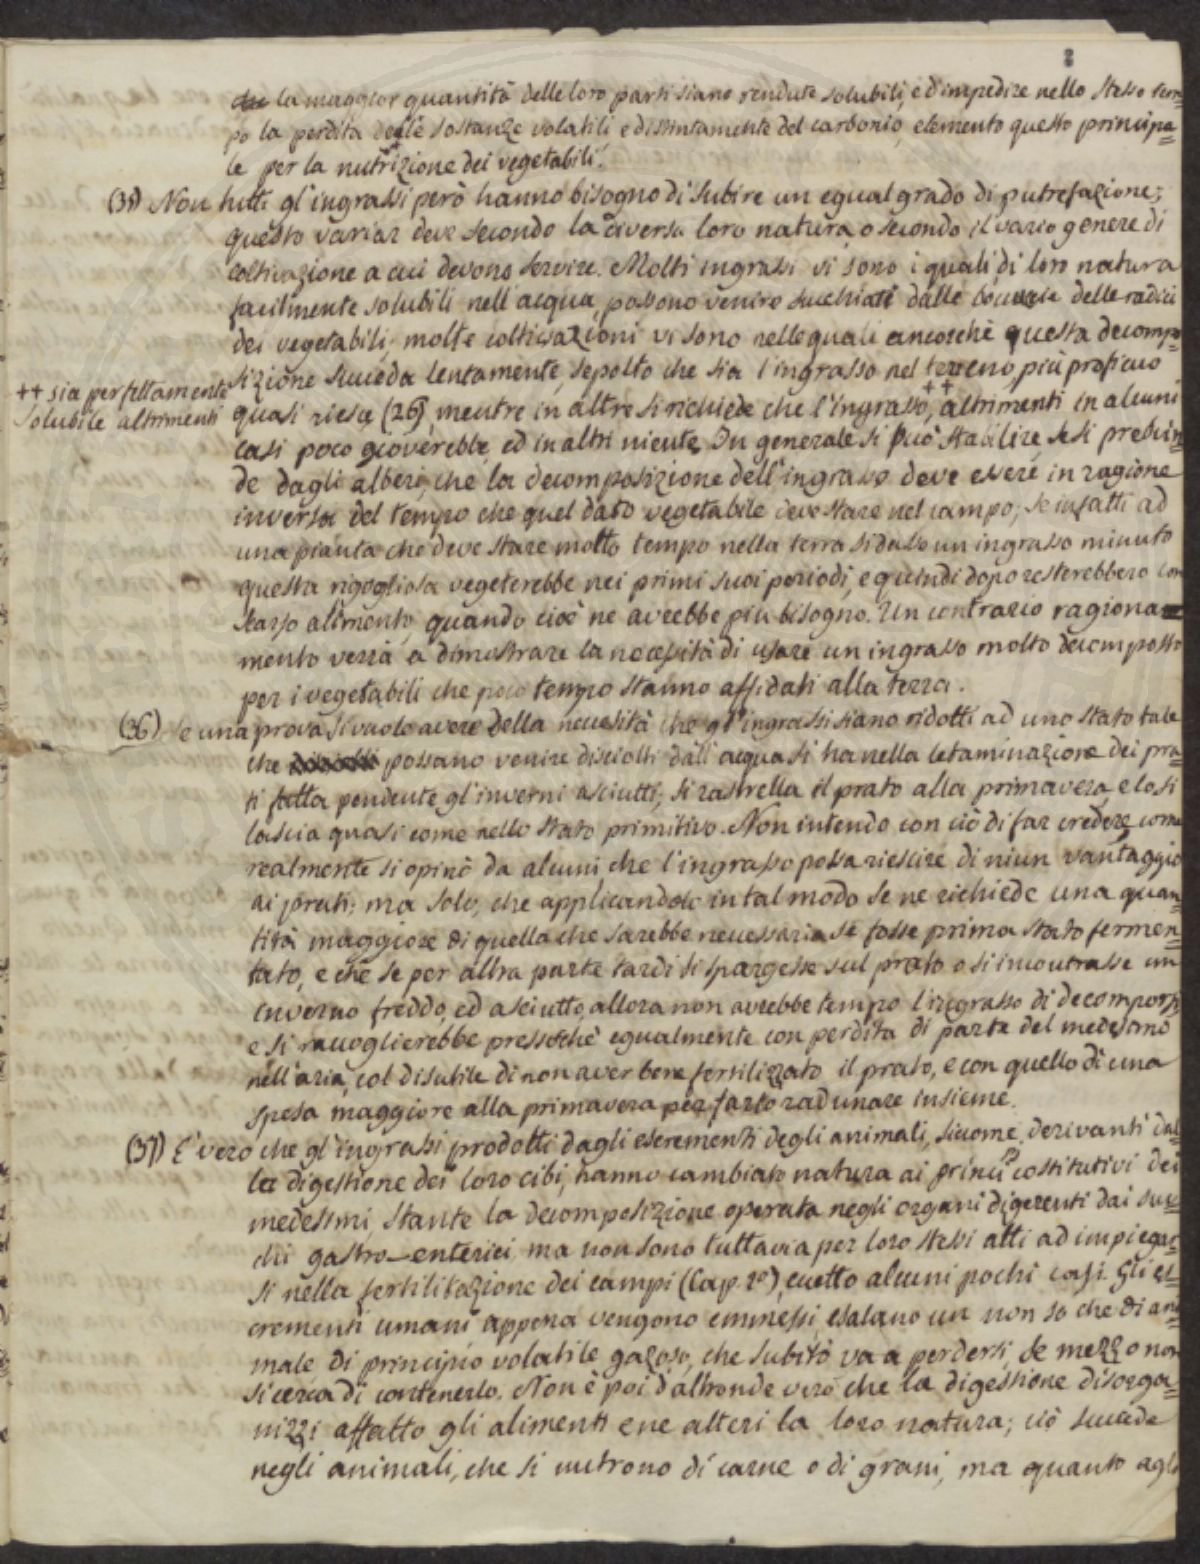 8
che la maggior quantità delle loro parti siano rendute solubili, e d'impedire nello stesso tem=
po la perdita delle sostanze volatili e distintamente del carbonio, elemento questo principa=
le per la nutrizione dei vegetabili.
(35) Non tutti gl'ingrassi però hanno bisogno di subire un egual grado di putrefazione;
questo variar deve secondo la diversa loro natura, o secondo il vario genere di
coltivazione a cui devono servire. Molti ingrassi vi sono i quali di loro natura
facilmente solubili nell'acqua, possono venire succhiati dalle boccucie delle radici
dei vegetabili; molte coltivazioni vi sono nelle quali ancorchè questa decompo=
sizione succeda lentamente, sepolto che sia l'ingrasso nel terreno, più proficuo
++ sia perfettamente
solubile altrimenti
quasi riesce (26), mentre in altre si richiede che l'ingrasso, ++ altrimenti in alcuni
casi poco gioverebbe, ed in altri niente. In generale si può stabilire, se si prescin=
de dagli alberi, che la decomposizione dell'ingrasso deve essere in ragione
inversa del tempo che quel dato vegetabile deve stare nel campo; se infatti ad
una pianta che deve stare molto tempo nella terra si dasse un ingrasso minuto
questa rigogliosa vegeterebbe nei primi suoi periodi, e quindi dopo resterebbero con
scarso alimento, quando cioè ne avrebbe più bisogno. Un contrario ragiona=
mento verrà a dimostrare la necessità di usare un ingrasso molto decomposto
per i vegetabili che poco tempo stanno affidati alla terra.
(36) Se una prova si vuole avere della necessità che gl'ingrassi siano ridotti ad uno stato tale
che possano venire disciolti dall'acqua si ha nella letaminazione dei pra=
ti fatta pendente gl'inverni asciutti; si rastrella il prato alla primavera, e lo si
lascia quasi come nello stato primitivo. Non intendo con ciò di far credere come
realmente si opinò da alcuni che l'ingrasso possa riescire di niun vantaggio
ai prati; ma solo, che applicandolo in tal modo se ne richiede una quan=
tità maggiore di quella che sarebbe necessaria se fosse prima stato fermen=
tato, e che se per altra parte tardi si spargesse sul prato o si incontrasse un
inverno freddo, ed asciutto, allora non avrebbe tempo l'ingrasso di decomporsi,
e si raccoglierebbe pressochè egualmente con perdita di parte del medesimo
nell'aria, col disutile di non aver bene fertilizzato il prato, e con quello di una
spesa maggiore alla primavera per farlo radunare insieme.
(37) E' vero che gl'ingrassi prodotti dagli escrementi degli animali, siccome derivanti dal=
la digestione dei loro cibi, hanno cambiato natura ai princip costitutivi dei
medesimi, stante la decomposizione operata negli organi digerenti dai suc=
chi gastro-enterici ma non sono tuttavia per loro stessi atti ad impiegar=
si nella fertilitazione dei campi (Cap. 2º), eccetto alcuni pochi casi. Gli es=
crementi umani appena vengono emmessi, esalano un non so che di ani=
male di principio volatile gazoso, che subito va a perdersi, se mezzo non
si cerca di contenerlo. Non è poi d'altronde vero che la digestione disorga=
nizzi affatto gli alimenti e ne alteri la loro natura; ciò succede
negli animali, che si nutrono di carne o di grani, ma quanto agli